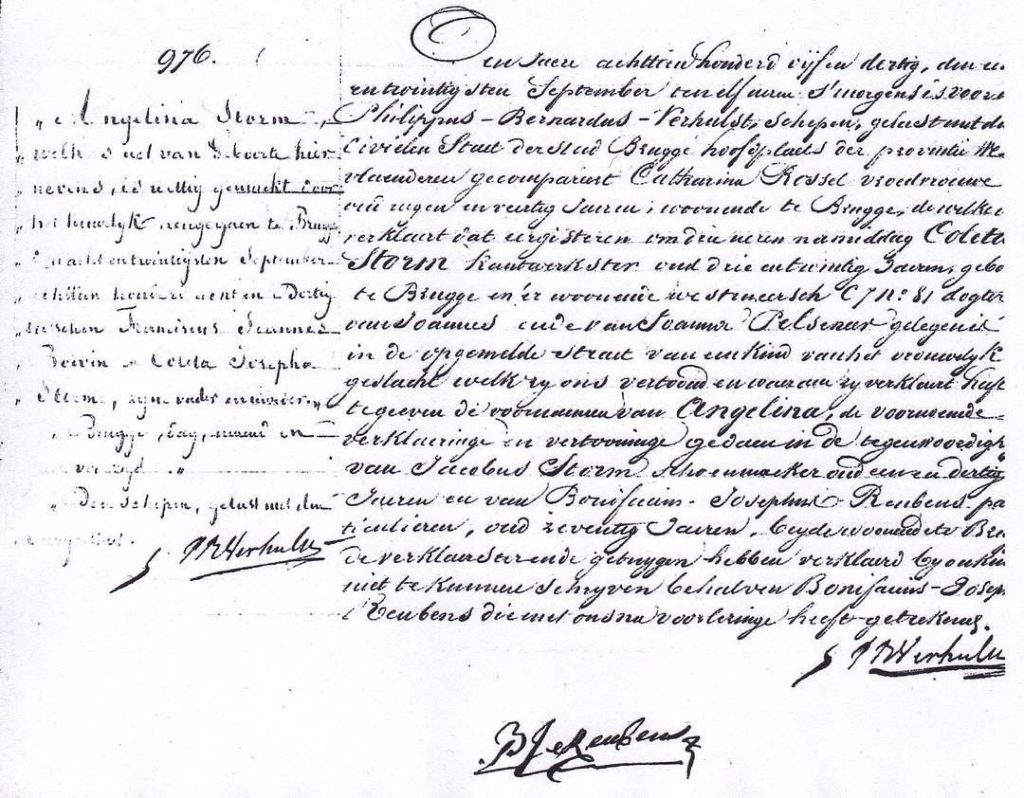 976.
Angelina Storm,
welkers act van Geboorte hier
nevens, is wettig gemaekt door
het huwelyk aengegaen te Brugge
den acht en twintigsten September
achttien honderd acht en Dertig
tusschen Franciscus Joannes
Boivin en Coleta Josepha
Storm, zyne vader en moeder,
Brugge, dag, maend en
Den Schepen, gelast met den
P B Verhulst
Den Jaere achttien honderd vijf en dertig, den
en twintigsten September ten elf uuren s'morgens is voor
Philippus-Bernardus-Verhulst, Schepen, gelast met de
Civielen Staet der stad Brugge hoofdplaets der provintie We
vlaenderen gecompareert Catharina Rossel vroedvrouwe
oud negen en veertig Jaeren, woonende te Brugge, de welke
verklaert dat eergisteren om drie uren namiddag Coleta
Storm kantwerkster oud drie en twintig Jaeren, gebo
te Brugge en er woonende westmeersch C 7 N.º 81 dogter
van Joannes ende van Joanna Pelsenar gelegen is
in de opgemelde Straet van een kind van het vrouwelyk
geslacht welk zy ons vertoond en waeraen zy verklaert heeft
te geeven de voornaemen van Angelina, de voornoemde
verklaeringe en vertooninge gedaen in de tegenwoordigh
van Jacobus Storm schoenmaeker oud een en dertig
Jaeren en van Bonifacius-Josephus-Reubens pa
ticulieren, oud zeventig Jaeren, beyde woonende te Bru
de verklaersterende getuygen hebben verklaerd by onkun
niet te kunnen Schryven behalven Bonifacius-Josep
Reubens die met ons na voorleringe heeft getekend.
P B Verhulst
B J Reubens